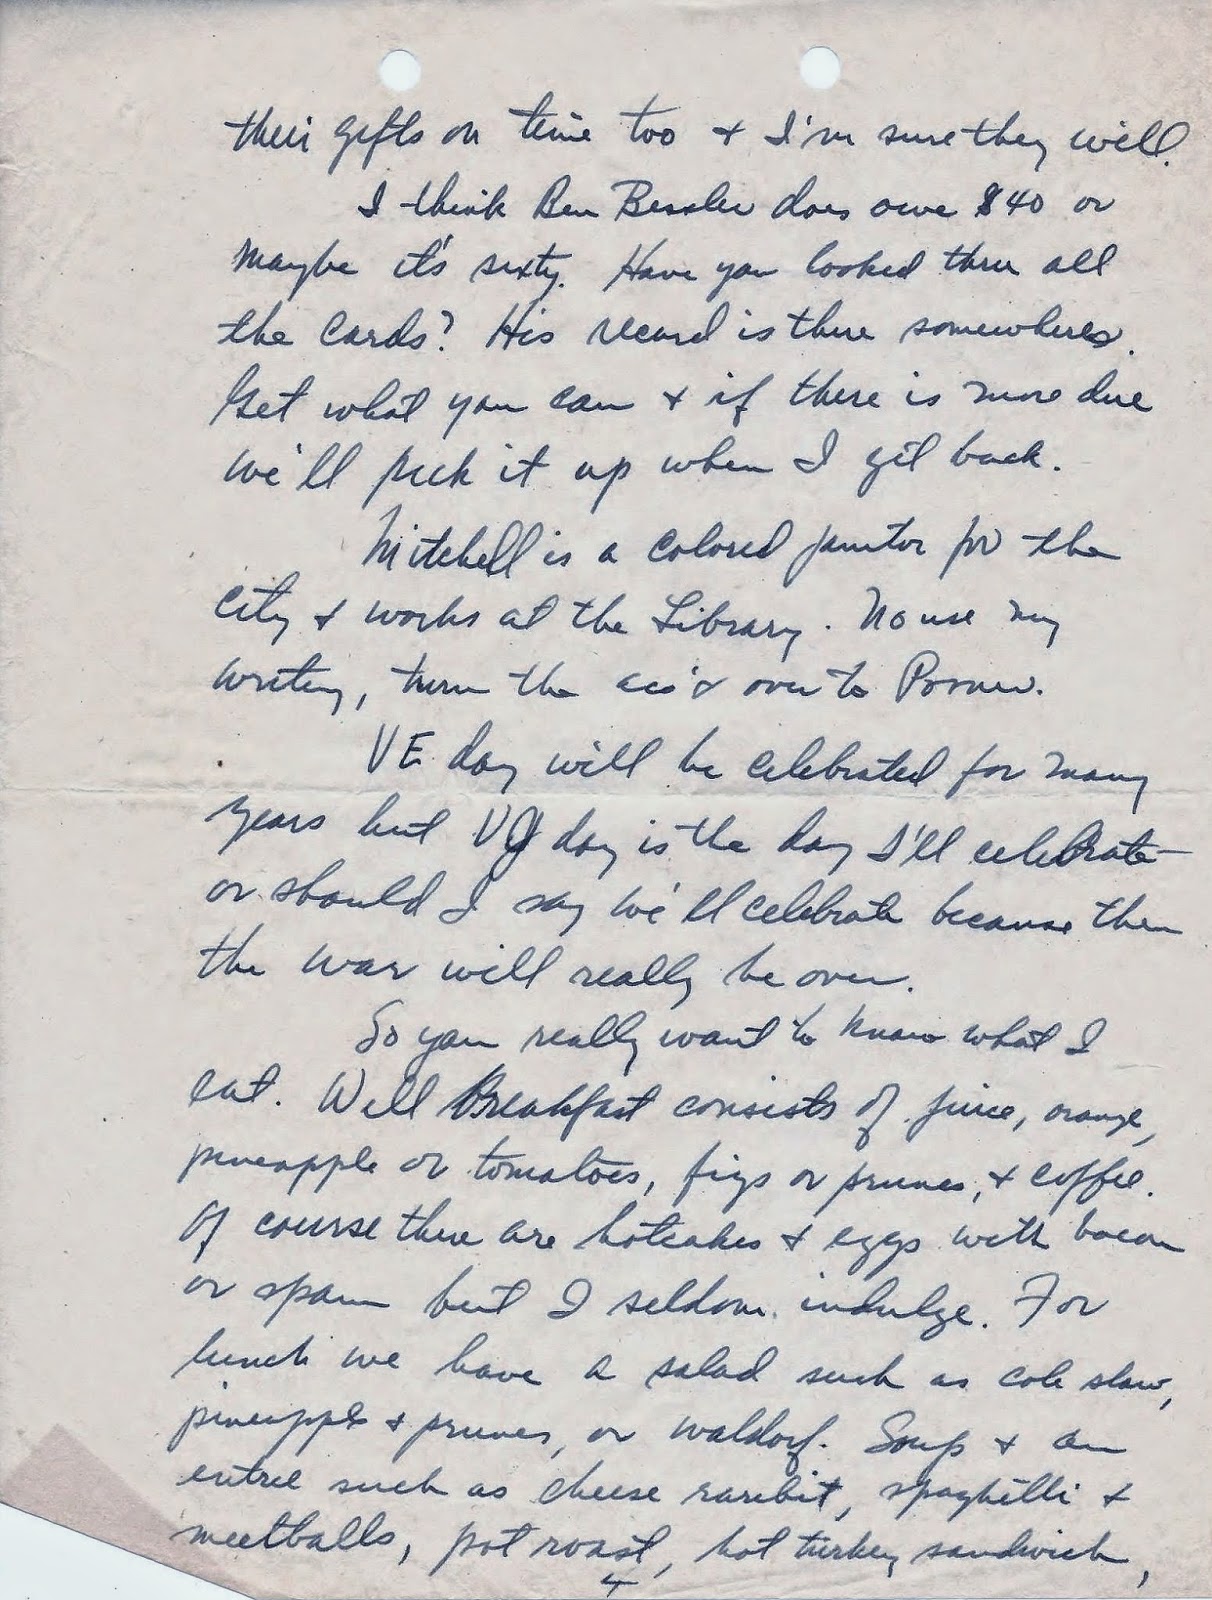 their gifts on time too + I'm sure they will.
I think Ben Bessler does owe $40 or
maybe it's sixty. Have you looked thru all
the cards? His record is there somewheres.
Get what you can + if there is more due
we'll pick it up when I get back.
Mitchell is a colored janitor for the
city & works at the Library. No use my
writing, turn the acc't over to
VE day will be celebrated for many
years but VJ day is the day I'll celebrate
or should I say we'll celebrate because then
the war will really be over.
So you really want to know what I
eat. Well Breakfast consists of juice, orange,
pineapple or tomatoes, figs or prunes, + coffee.
Of course there are hotcakes + eggs with bacon
or spam but I seldom indulge. For
lunch we have a salad such as cole slaw,
pineapple + prunes, or waldorf. Soup + an
entree such as cheese rarebit, spaghetti +
meetballs, pot roast, hot turkey sandwich,
4